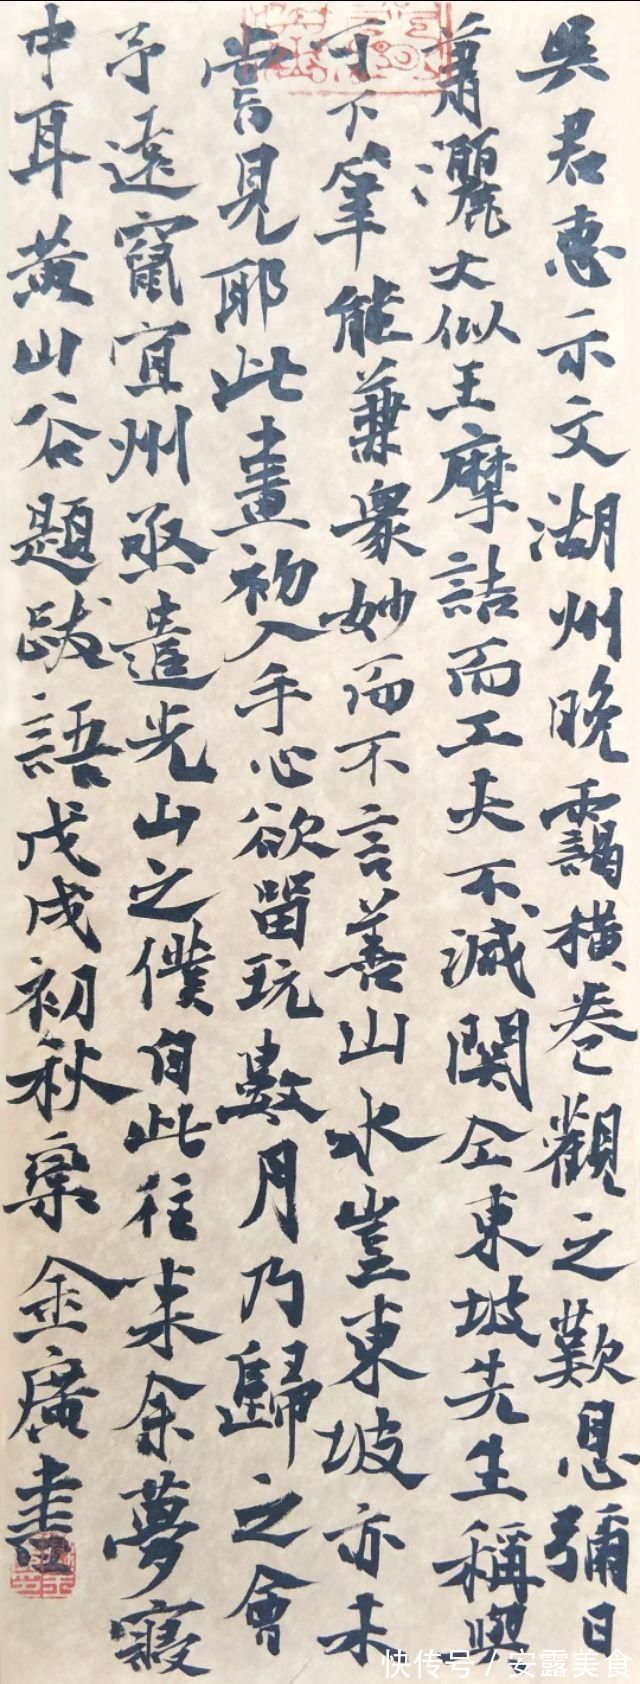 吳君惠示文湖州晚靄橫卷觀之歎息彌日
蕭灑大似王摩詰而工夫不減關仝東坡先生稱與
可下筆能兼衆妙而不言善山水豈東坡亦未
嘗見耶此畫初入手心欲留玩數月乃歸之會
予遠竄宜州亟遣光山之僕自此往來余夢寢
中耳黃山谷題跋語戊戌初秋金廣書
快传号 / 安露美食